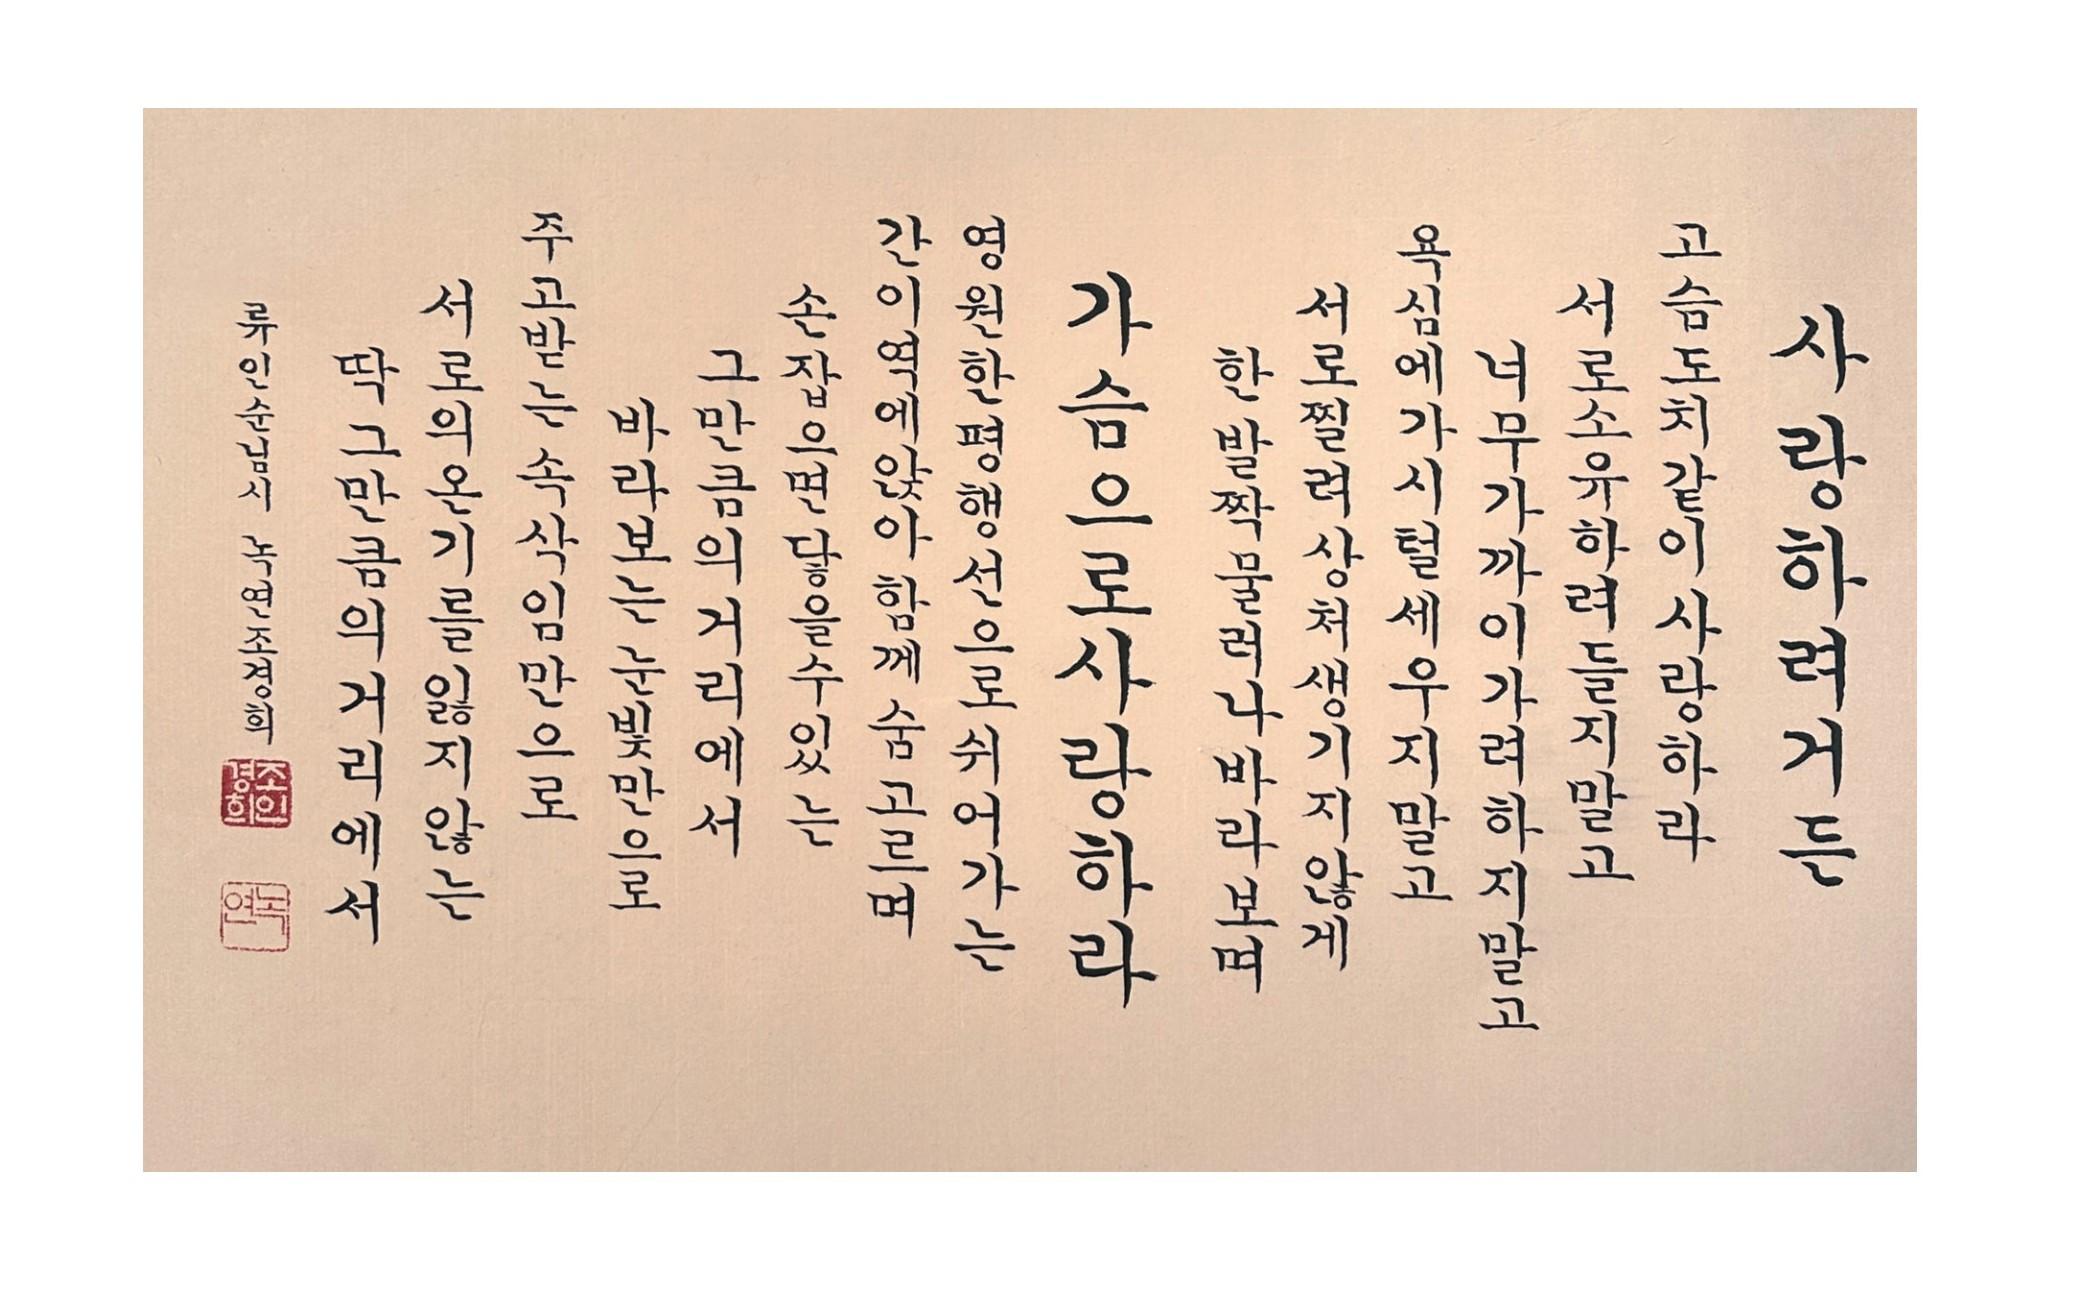 사랑하려거든
고슴도치같이 사랑하라
서로소유하려들지말고
너무가까이가려하지말고
욕심에가시털세우지말고
서로찔려상처생기지않게
한 발짝 물러나 바라보며
가슴으로사랑하라
영원한평행선으로쉬어가는
간이역에앉아 함께 숨고르며
손잡으면닿을수있는
그만큼의거리에서
바라보는 눈빛만으로
주고받는 속삭임만으로
서로의온기를잃지않는
딱 그만큼의 거리에서
류인순님시 녹연조경희
조인
경희
녹
연